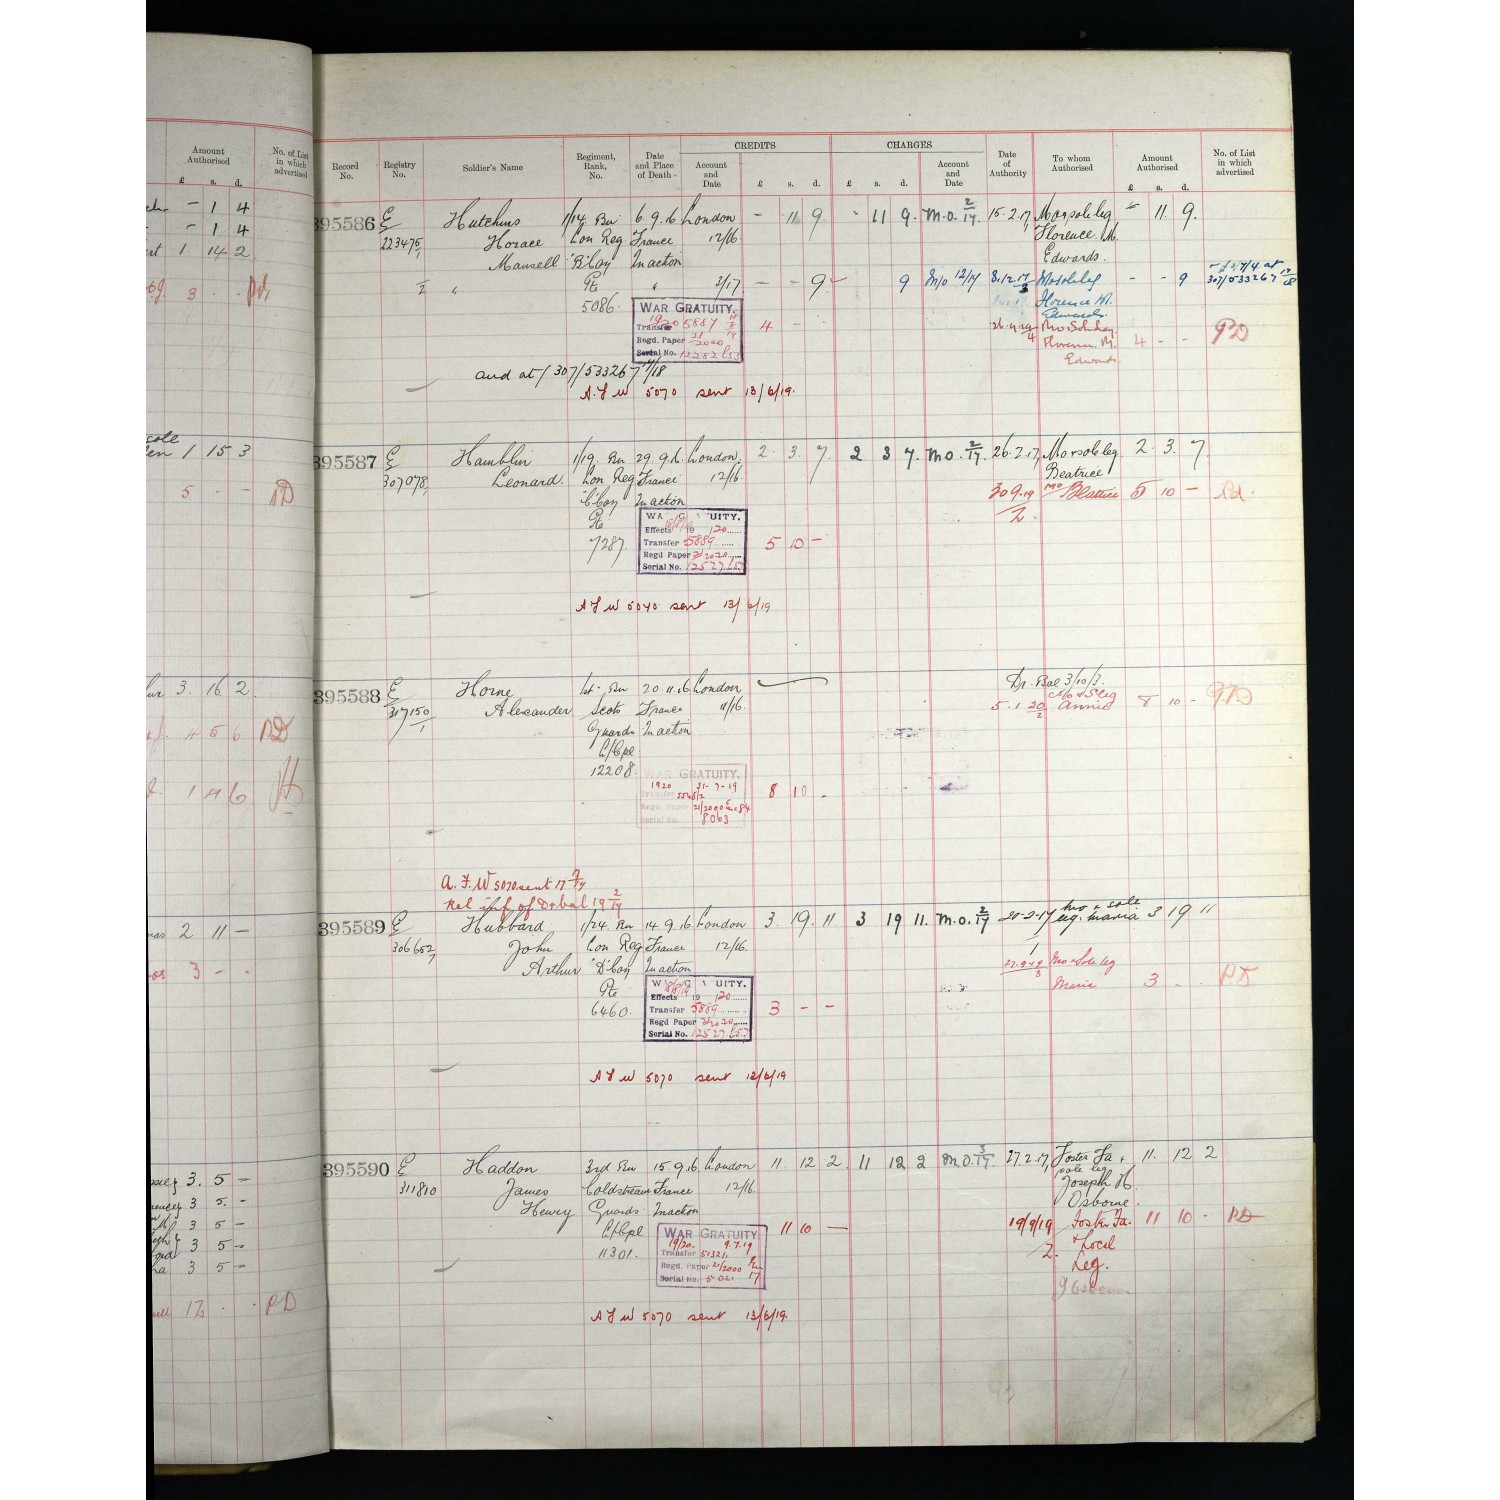 Amount Authorised
£ s. d.
No. of List in which advertised
- 1 4
- 1 4
1 14 2
3 - -
1 15 3
5 - -
3. 16 2
4 5 6
2 11 -
3 - -
3. 5 -
3 5 -
3 5 -
3 5 -
3 5 -
12 PD
CREDITS
CHARGES
Record No.
Registry No.
Soldier's Name
Regiment, Rank, No.
Date and Place of Death
Account and Date
£ s. d.
£ s. d.
Account and Date
Date of Authority
To whom Authorised
Amount Authorised
£ s. d.
No. of List in which advertised
395586 E Hutchins 1/14 Bn 6.9.16 London - 11 9 - 11 9. M.O. 2/17 15.2.17 Mo & sole leg - 11. 9.
223475 Horace Lon Reg France 12/16 Florence M.
Mansell "B" Coy In action Edwards.
" Pte " 3/17 - - 9 9 M/o 12/17 8.12.17 Mo sole leg - - 9 307/533267
5086. Florence M.
Edwards.
WAR GRATUITY.
Transfer 5887
Regd. Paper 31/2020
Serial No. 12282
4 - -
Mo & Sole Leg
Florence M. 4 - - PD
Edwards
and at / 307/533267 11/18
A.F W 5070 sent 13/6/19.
395587 E Hamblin 1/19. Bn 29.9.16. London. 2. 3. 7. 2 3 7. M.O. 2/17. 26.2.17, Mo & sole leg 2. 3. 7.
307078, Leonard. Lon Reg France 12/16. Beatrice
"C" Coy In action
Pte
7287.
30 9.19 Mo Beatrice 5 10 -
2.
WA G UITY.
Effects 19 /20
Transfer 5889
Regd Paper 31/2020
Serial No. 12527
5 10 -
A F W 5070 sent 13/6/19
395588 E Horne 1st Bn 20.11.16 London
317150/1 Alexander Scots France 11/16.
Guards In action
L/Cpl
12208.
Dr. Bal 3/10/3.
Mo & S leg
5.1 20/2 Annie 8 10 -
WAR GRATUITY.
1920 31-7-19
Transfer
Regd Paper
Serial No. 8063
8 10 -
A. F. W 5070 sent 17
Rel inf of Dr bal 19 2/19
395589 E Hubbard 1/24. Bn 14.9.16. London 3. 19. 11 3 19 11. M.O. 2/17 20-2-17 Mo & sole leg. Maria 3 19 11
306652 John Lon Reg France 12/16.
Arthur "D" Coy In action
Pte
6460.
27.9.19 Mo & Sole leg
3 Maria 3 - - P.D
W G UITY.
Effects 19 /20
Transfer 5889
Regd Paper 31/2020
Serial No. 12527
3 - -
A F W 5070 sent 12/6/19
395590 E Haddon 3rd Bn 15.9.16. London 11. 12 2. 11 12 2 M.O. 3/17. 27.2.17, Foster Fa & 11. 12 2
311810 James Coldstream France 12/16. sole leg
Henry Guards In action Joseph H.
L/Cpl Osborne.
11301.
19/9/19 Foster Fa. 11 10 - PD
2. & Local
Leg.
WAR GRATUITY
19/20. 9.7.19
Transfer 51321
Regd. Paper 21/2000
Serial No. 5021 17
11 10 -
A F W 5070 sent 13/6/19.